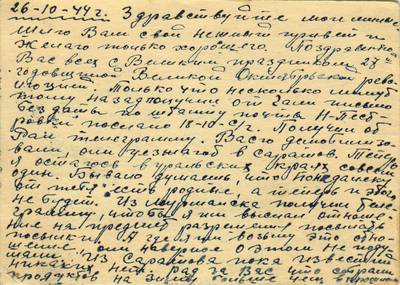 26-10-44г. Здравствуйте мои милые
Шлю Вам свой нежный привет и
Желаю только хорошего. Поздравляю
Вас всех с Великим праздником 27й
годовщиной Великой Октябрьской рево-
люции. Только что несколько минут
тому назад получил от Гали письмо
без даты по штампу почты Н-Пест-
ровки послано 18-10-с/г. Получил от
Раи телеграмму Васю демобилизо-
вали они уезжают в Саратов. Теперь
я остаюсь в уральских горах совсем
один. Бывало думаешь, что недалеко
от тебя есть родные, а теперь и этого
не будет. Из Мурманска получил теле-
грамму, чтобы я им выслал отноше-
ние на предмет разрешения посылать
посылки. А где я им возьму это отно-
шение, они наверное о этом не поду-
мали. Из Саратова пока известий
никаких нет. Рад за Вас что собрали
продуктов на зиму больше чем в прошлом